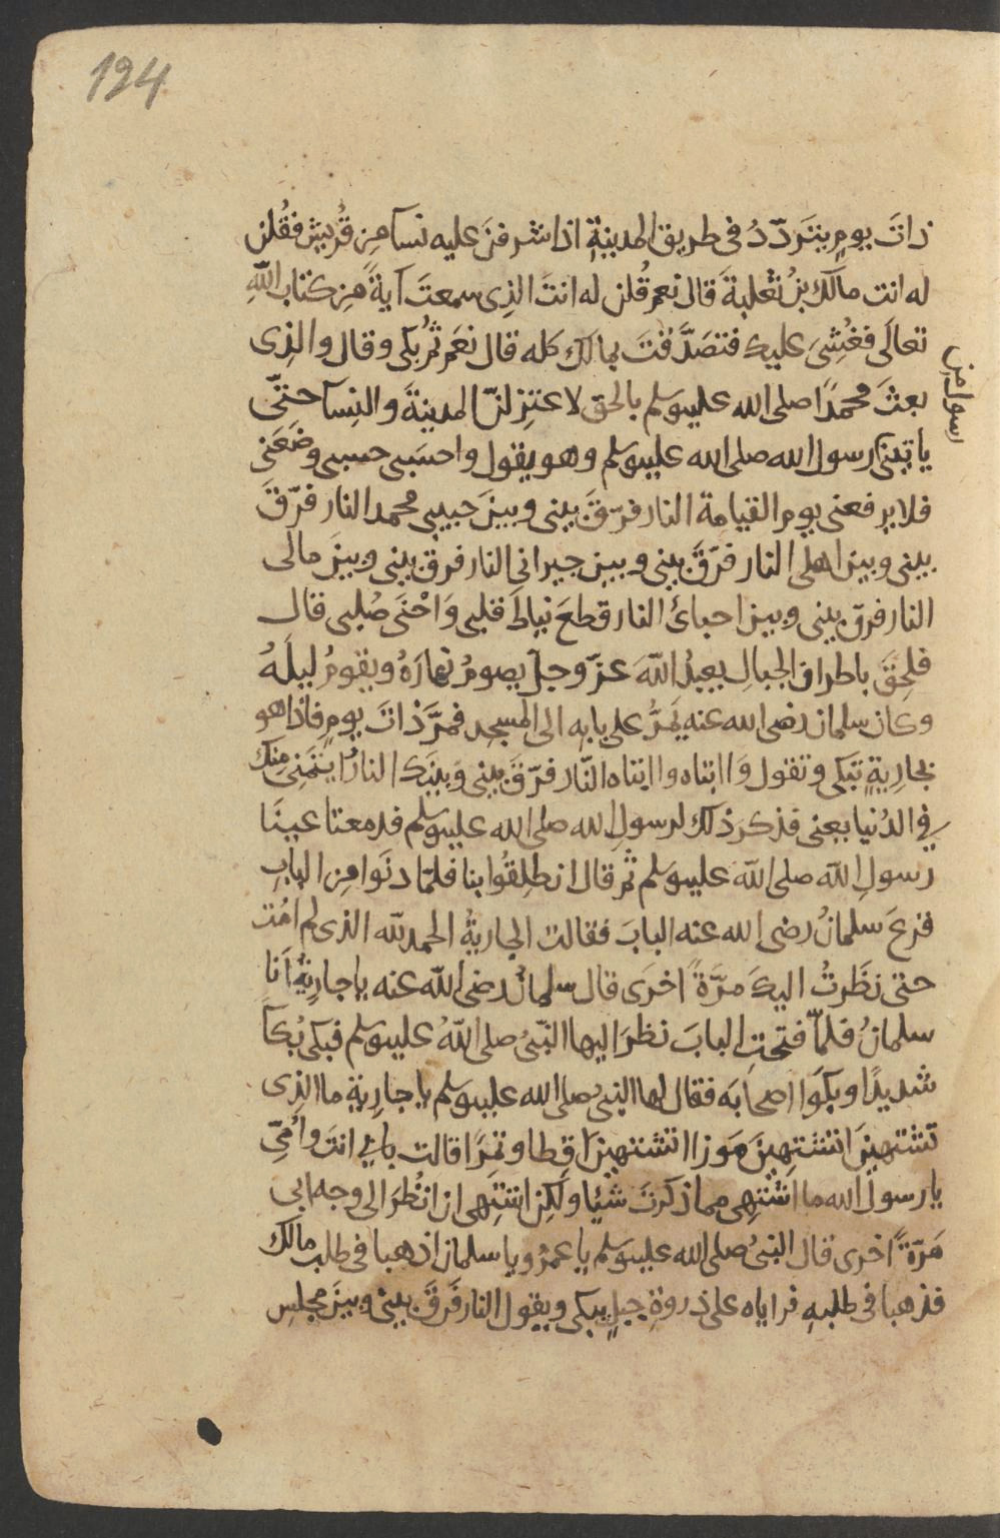 124
ذاتَ يومٍ يتَردّدُ فى طريق المدينةِ اذا شرفنَ عليه نسآ مِن قُريش فقُلن
له انت مالك بنُ ثعْلبةَ قال نعم قُلن له انتَ الذِى سمعتَ آيةً مِن كتاب اللّٰهِ
تعالَى فغُشِىَ عليك فتصَدَّقتَ بمالك كله قال نعَم ثمّ بُكى وقال والذِى
بعثَ محمدًا صلى الله عليه وسَلم بالحق لاعتزِلنّ المدينةَ والنِسآ حتّى
رسول مِن
ياتينى رسول الله صلى الله عليه وسَلم وهو يقول واحسَبى حسبى وضَعَنى
فلا يرفعنى يوم القيامة النار فرّقَ بينى وبينَ حبيبى محمد النار فرّقَ
بينى وبين اهلى النار فرّقَ بينى وبين جيرانى النار فرق بينى وبينَ مالى
النار فرق بينى وبين احبائ النار قطعَ نياطَ قلبى وَاحْنَى صُلبى قال
فلحِقَ باطراف الجبالِ يعبدُ اللّٰهَ عزّ وجلّ يصومُ نهارَهُ ويقومُ ليلَهُ
وكان سلمان رضى الله عنه يَمرُّ على بابِه الى المسجِد فمرَّ ذاتَ يومٍ فاذا هو
بجارِيةٍ تبَكى وتقول وَاابتاه واابتاه النّار فرّقَ بينى وَبينَك النارُ ايتمَنِى مِنك
فى الدُنيا يعنى فذكر ذلك لرسولِ الله صلى الله عليه وسَلم فدمعتا عينَا
رسولِ اللّٰه صلى اللّٰه عليه وسَلم ثم قال انطلِقُوا بنا فلمّا دنَوا مِن البابِ
قرعَ سلمانُ رضى الله عنه البابَ فقالت الجاريةُ الحمد للّٰه الذى لم امُت
حتى نظَرتُ اليكَ مرَّةً اخرَى قال سلمانُ رضى اللّٰه عنه يا جاريةُ اَنا
سلمانُ فلمّا فتحَتِ البابَ نظرَ اليها النّبىُ صلى اللّٰهُ عليه وسَلم فبكى بُكآ
شديدًا وبكَوا اصحابَه فقال لها النبىُ صلى الله عليه وسَلم يا جارِية ما الذِى
تشتهينَ اتشتهِينَ مَوزا اتشتهينَ اقِطا وتمرًا قالت بابى انتَ واُمّى
يا رسولَ الله ما اشتهِى مما ذكرتَ شيًا ولكِن اشتَهى ان انظُرَ الى وجه ابى
مَرّةً اخرى قال النبىُ صلى الله عليه وسَلم يا عمرُ ويا سلمان اذهبا فى طلب مالك
فذهبا فى طلبهِ فراياه على ذروةِ جبلٍ يبكى ويقول النار فَرقَ بينى وبينَ مجلسِ